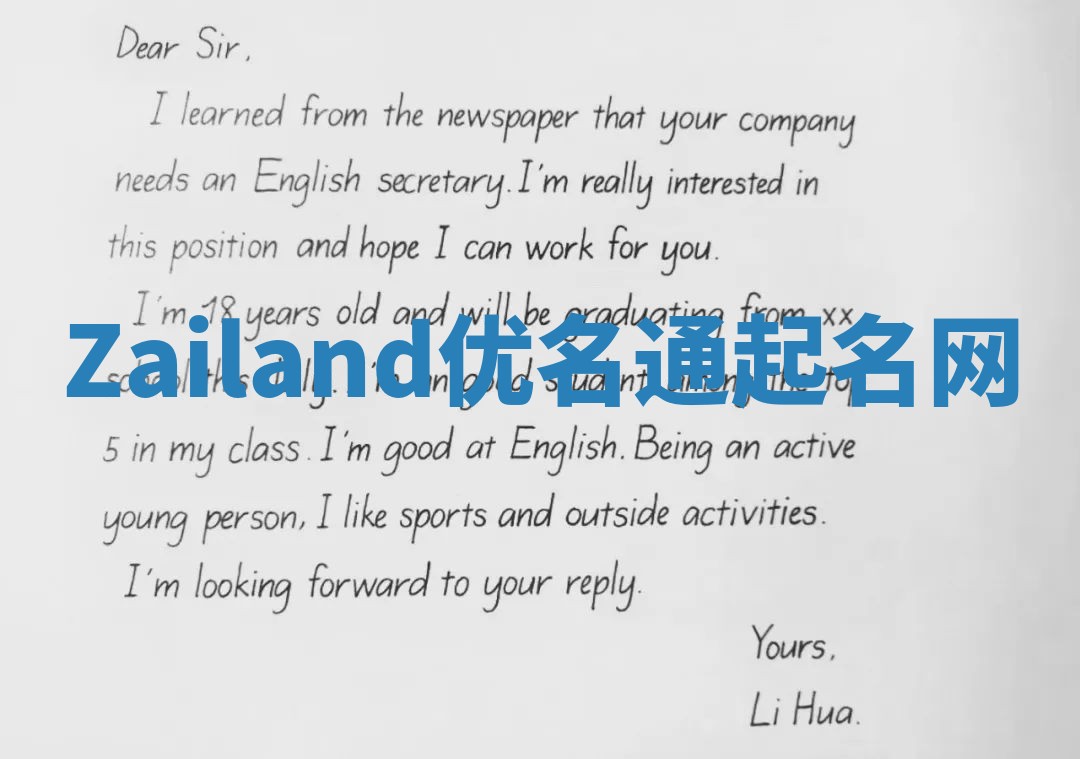 Dear Sir,
I learned from the newspaper that your company
needs an English secretary. I'm really interested in
this position and hope I can work for you.
I'm 18 years old and will be graduating from xx
Zailand优名通起名网
school this July. I'm an good student among the top
5 in my class. I'm good at English. Being an active
young person, I like sports and outside activities.
I'm looking forward to your reply.
Yours,
Li Hua.